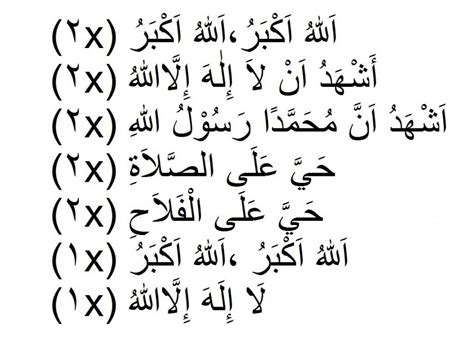 اَللهُ اَكْبَرُ ،اَللهُ اَكْبَرُ (٢x)
أَشْهَدُ اَنْ لاَ إِلٰهَ إِلَّااللهُ (٢x)
اَشْهَدُ اَنَّ مُحَمَّدًا رَسُوْلُ اللهِ (٢x)
حَيَّ عَلَى الصَّلاَةِ (٢x)
حَيَّ عَلَى الْفَلاَحِ (٢x)
اَللهُ اَكْبَرُ ،اَللهُ اَكْبَرُ (١x)
لَا إِلَهَ إِلَّااللهُ (١x)